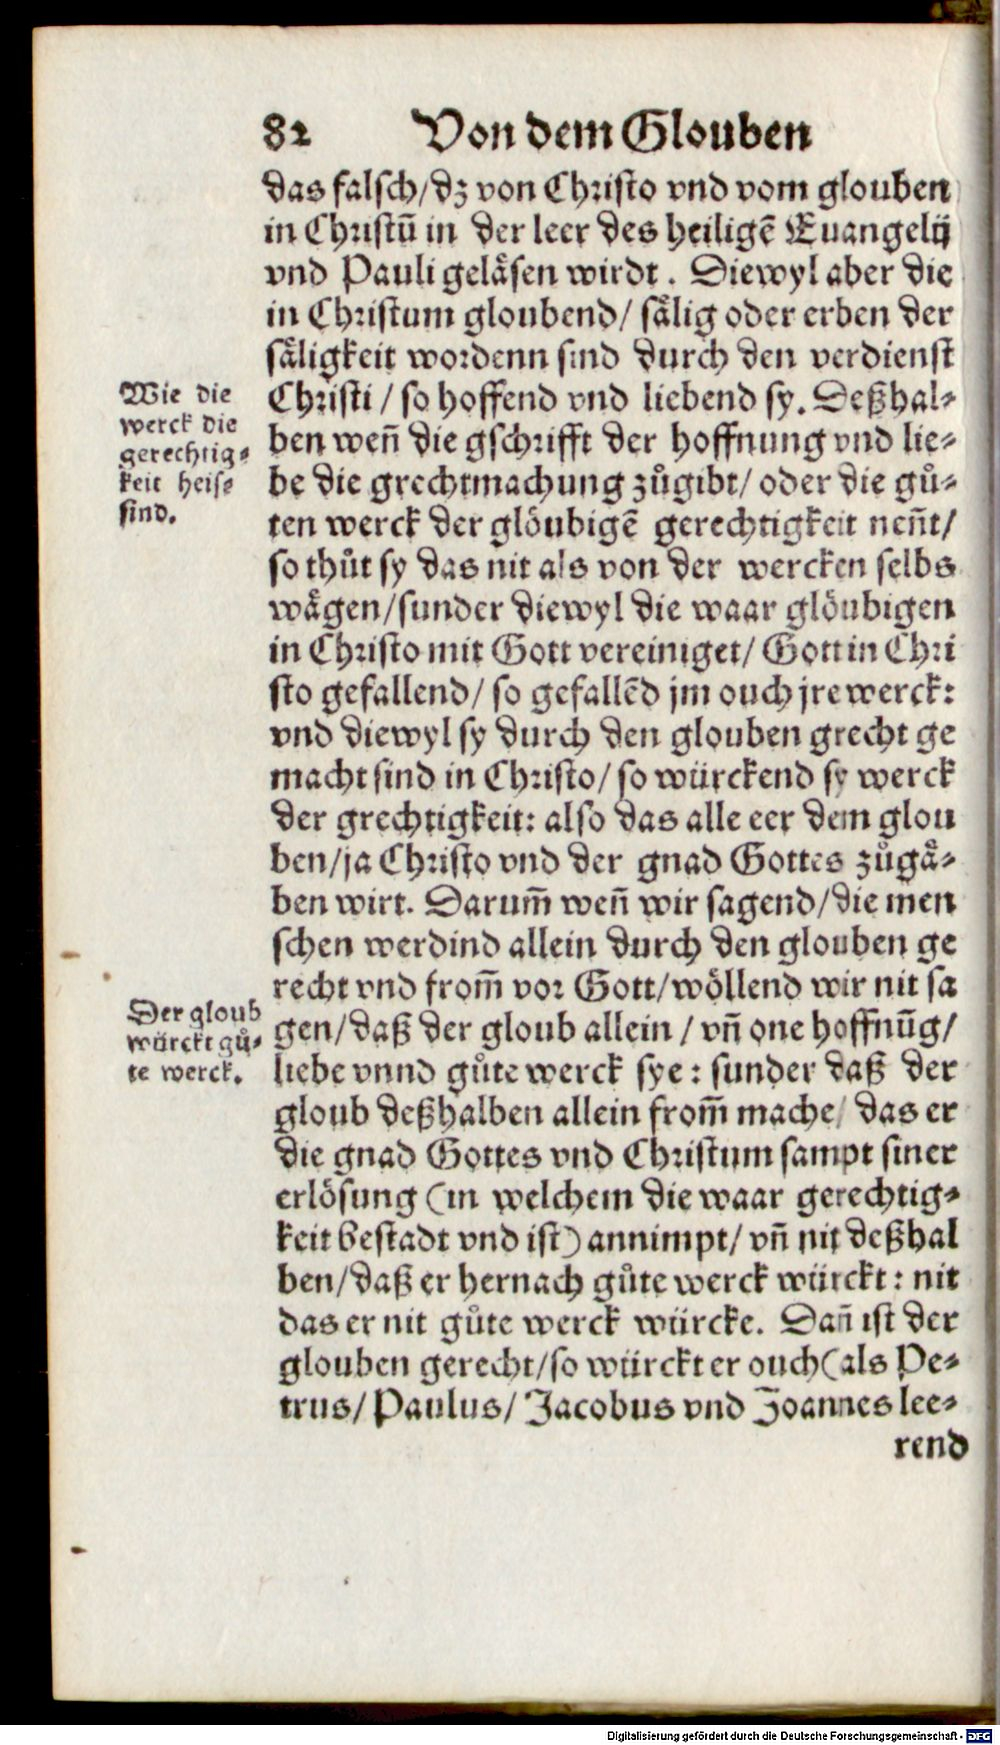 82 Von dem Glouben
das falsch/dz von Christo vnd vom glouben
in Christū in der leer des heiligē Euangelij
vnd Pauli geläsen wirdt. Diewyl aber die
in Christum gloubend/ sälig oder erben der
säligkeit wordenn sind durch den verdienst
Wie die
werck die
gerechtig-
keit heis-
sind.
Christi / so hoffend vnd liebend sy. Deßhal-
ben weñ die gschrifft der hoffnung vnd lie-
be die grechtmachung zůgibt/ oder die gů-
ten werck der glöubigē gerechtigkeit neñt/
so thůt sy das nit als von der wercken selbs
wägen/sunder diewyl die waar glöubigen
in Christo mit Gott vereiniget/ Gott in Chri
sto gefallend/ so gefallēd jm ouch jre werck:
vnd diewyl sy durch den glouben grecht ge
macht sind in Christo/ so würckend sy werck
der grechtigkeit: also das alle eer dem glou
ben/ja Christo vnd der gnad Gottes zůgä-
ben wirt. Darum̃ weñ wir sagend/die men
schen werdind allein durch den glouben ge
recht vnd from̃ vor Gott/wöllend wir nit sa
Der gloub
würckt gů-
te werck.
gen/daß der gloub allein / vñ one hoffnūg/
liebe vnnd gůte werck sye: sunder daß der
gloub deßhalben allein from̃ mache/ das er
die gnad Gottes vnd Christum sampt siner
erlösung (in welchem die waar gerechtig-
keit bestadt vnd ist) annimpt/ vñ nit deßhal
ben/daß er hernach gůte werck würckt: nit
das er nit gůte werck würcke. Dañ ist der
glouben gerecht/so würckt er ouch(als Pe-
trus/ Paulus/ Jacobus vnd Joannes lee-
rend
Digitalisierung gefördert durch die Deutsche Forschungsgemeinschaft - DFG